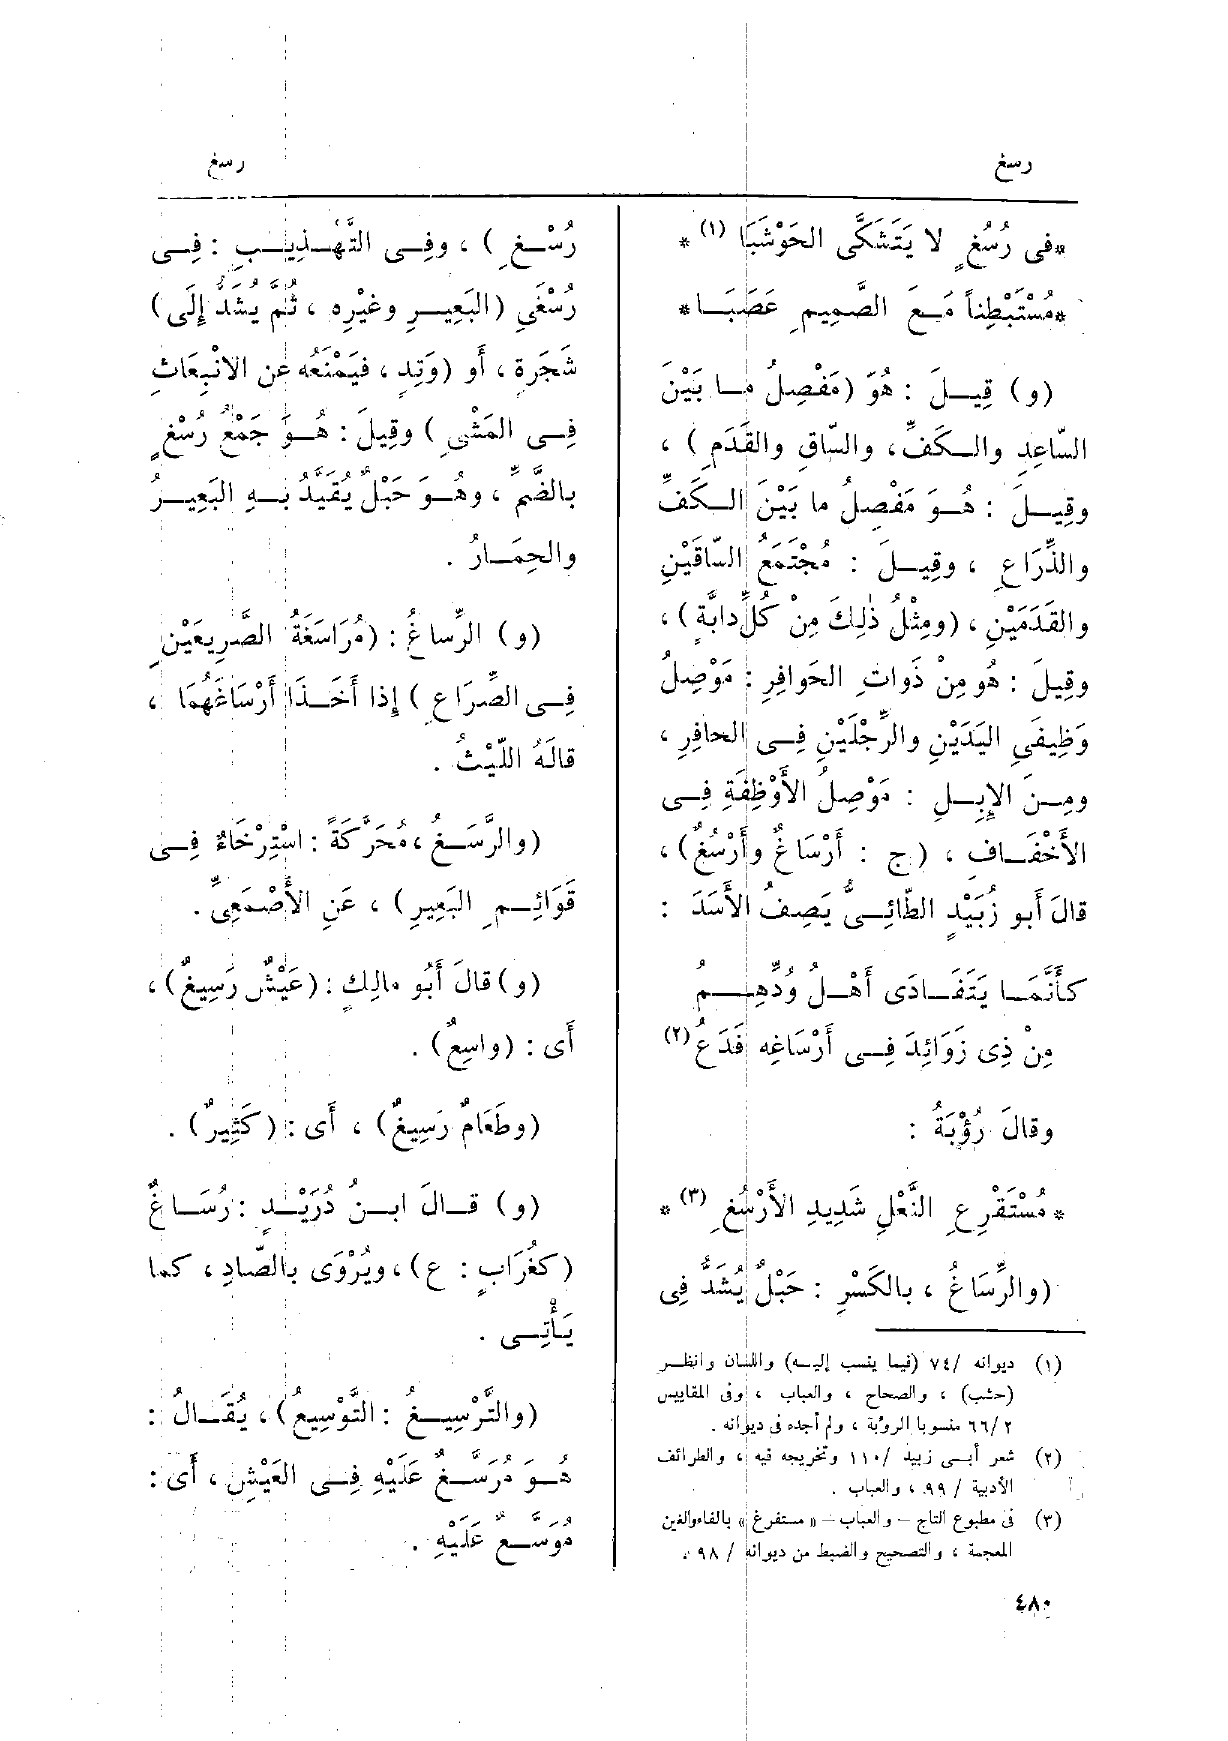 رسغ
رسغ
*فى رُسُغٍ لا يَتَشَكَّى الحَوْشَبَا (١) *
*مُسْتَبْطِناً مَعَ الصَّمِيمِ عَصَبَا*
(و) قِيلَ : هُوَ (مَفْصِلُ ما بَيْنَ
السَّاعِدِ والكَفِّ، والسَّاقِ والقَدَمِ) ،
وقِيلَ : هُوَ مَفْصِلُ ما بَيْنَ الكَفِّ
والذِّرَاعِ ، وقِيلَ : مُجْتَمَعُ السَّاقَيْنِ
والقَدَمَيْنِ ، (ومِثْلُ ذٰلِكَ مِنْ كُلِّ دابَّةٍ) ،
وقِيلَ : هُو مِنْ ذَواتِ الحَوافِرِ : مَوْصِلُ
وَظِيفَيِ اليَدَيْنِ والرِّجْلَيْنِ فِى الحافِرِ ،
ومِنَ الإِبِلِ : مَوْصِلُ الأَوْظِفَةِ فِى
الأَخْفَافِ ، (ج : أَرْسَاغٌ وأَرْسُغٌ) ،
قالَ أَبو زُبَيْدٍ الطّائِىُّ يَصِفُ الأَسَدَ :
كَأَنَّمَا يَتَفَادَى أَهْلُ وُدِّهِمُ
مِنْ ذِى زَوَائِدَ فِى أَرْسَاغِه فَدَعُ (٢)
وقالَ رُؤْبَةُ :
* مُسْتَقْرِعِ النَّعْلِ شَدِيدِ الأَرْسُغِ (٣) *
(والرِّسَاغُ ، بالكَسْرِ : حَبْلٌ يُشَدُّ فِى
(١) ديوانه /٧٤ (فيما ينسب إليه) واللسان وانظر
(حشب) ، والصحاح ، والعباب ، وفى المقاييس
٢ /٦٦ منسوبا الرؤبة ، ولم أجده فى ديوانه .
(٢) شعر أبى زبيد /١١٠ وتخريجه فيه ، والطرائف
الأدبية / ٩٩ ، والعباب .
(٣) فى مطبوع التاج – والعباب – « مستفرغ » بالفاءوالغين
المعجمة ، والتصحيح والضبط من ديوانه / ٩٨ .
رُسْغِ) ، وفِى التَّهْذِيبِ : فِى
رُسْغَىِ (البَعِيرِ وغيْرِه ، ثُمَّ يُشَدُّ إِلَى)
شَجَرَةٍ ، أَو (وَتِدٍ ، فيَمْنَعُه عن الانْبِعَاثِ
فِى المَشْىِ ) وقِيلَ : هُوَ جَمْعُ رُسْغٍ
بالضَّمِّ ، وهُوَ حَبْلٌ يُقَيَّدُ بِهِ البَعِيرُ
والحِمَارُ .
(و) الرِّساغُ : (مُرَاسَغَةُ الصَّرِيعَيْنِ
فِى الصِّرَاعِ ) إِذا أَخَذَا أَرْسَاغَهُمَا ،
قالَهُ اللَّيْثُ .
(والرَّسَغُ ، مُحَرَّكَةً : اسْتِرْخَاءٌ فِى
قَوَائِمِ البَعِيرِ) ، عَنِ الأَصْمَعِىِّ .
(و) قالَ أَبُو مالِكٍ : (عَيْشٌ رَسِيغٌ) ،
أَى : (واسِعٌ) .
(وطَعَامٌ رَسِيغٌ) ، أَى : (كَثِيرٌ) .
(و) قالَ ابنُ دُرَيْدٍ : رُسَاغٌ
(كغُرَابٍ : ع) ، ويُرْوَى بالصَّادِ ، كما
يَأْتِى .
(والتَّرْسِيغُ : التَّوْسِيعُ) ، يُقَالُ :
هُوَ مُرَسَّغٌ عَلَيْهِ فِى العَيْشِ ، أَى :
مُوَسَّعٌ عَلَيْهِ .
٤٨٠